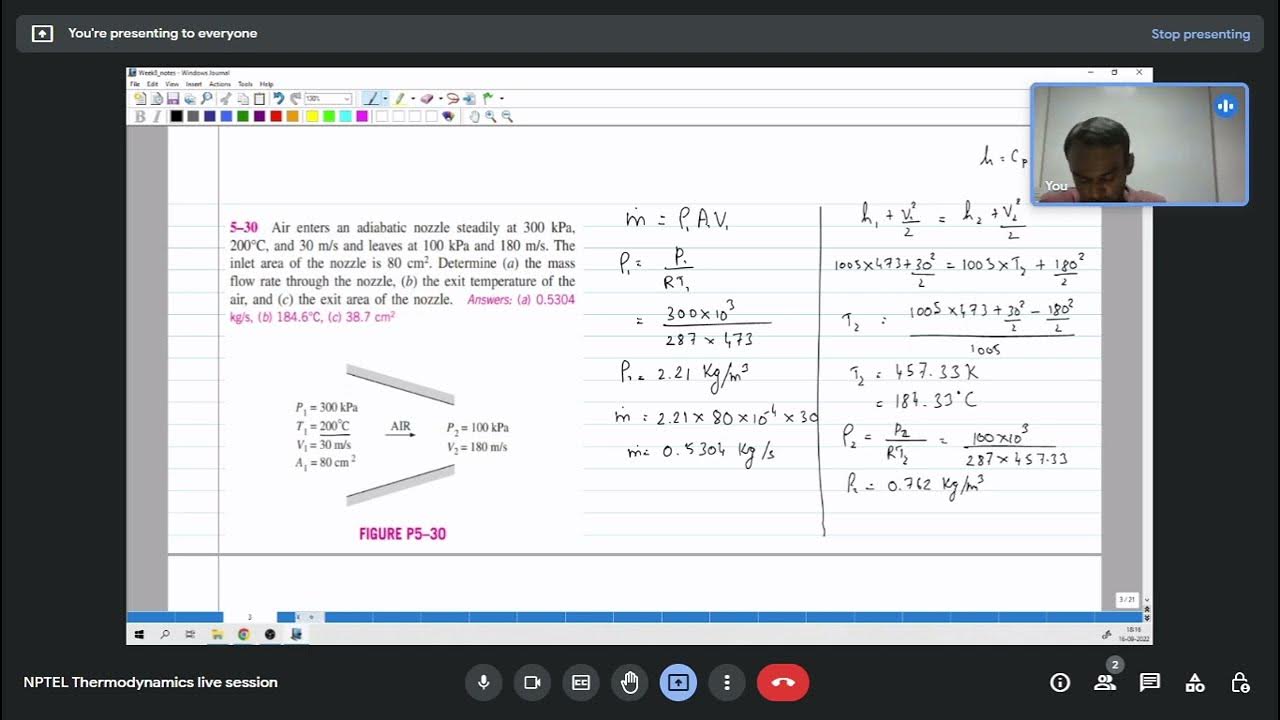 You're presenting to everyone
Stop presenting
Week8_notes - Windows Journal
File Edit View Insert Actions Tools Help
130%
B I
h = Cp
You
5–30 Air enters an adiabatic nozzle steadily at 300 kPa,
200°C, and 30 m/s and leaves at 100 kPa and 180 m/s. The
inlet area of the nozzle is 80 cm². Determine (a) the mass
flow rate through the nozzle, (b) the exit temperature of the
air, and (c) the exit area of the nozzle. Answers: (a) 0.5304
kg/s, (b) 184.6°C, (c) 38.7 cm²
P₁ = 300 kPa
T₁ = 200°C
V₁ = 30 m/s
A₁ = 80 cm²
AIR
P₂ = 100 kPa
V₂ = 180 m/s
FIGURE P5–30
ṁ = ρ₁ A₁ V₁
ρ₁ = P₁ / RT₁
= 300×10³ / 287 × 473
ρ₁ = 2.21 Kg/m³
ṁ = 2.21 × 80 × 10⁻⁴ × 30
ṁ = 0.5304 Kg/s
h₁ + V₁²/2 = h₂ + V₂²/2
1005×473 + 30²/2 = 1005×T₂ + 180²/2
T₂ = 1005×473 + 30²/2 − 180²/2 / 1005
T₂ = 457.33K
= 184.33°C
ρ₂ = P₂ / RT₂ = 100×10³ / 287×457.33
ρ₂ = 0.762 Kg/m³
3
3 / 21
18:16
16-09-2022
NPTEL Thermodynamics live session
2